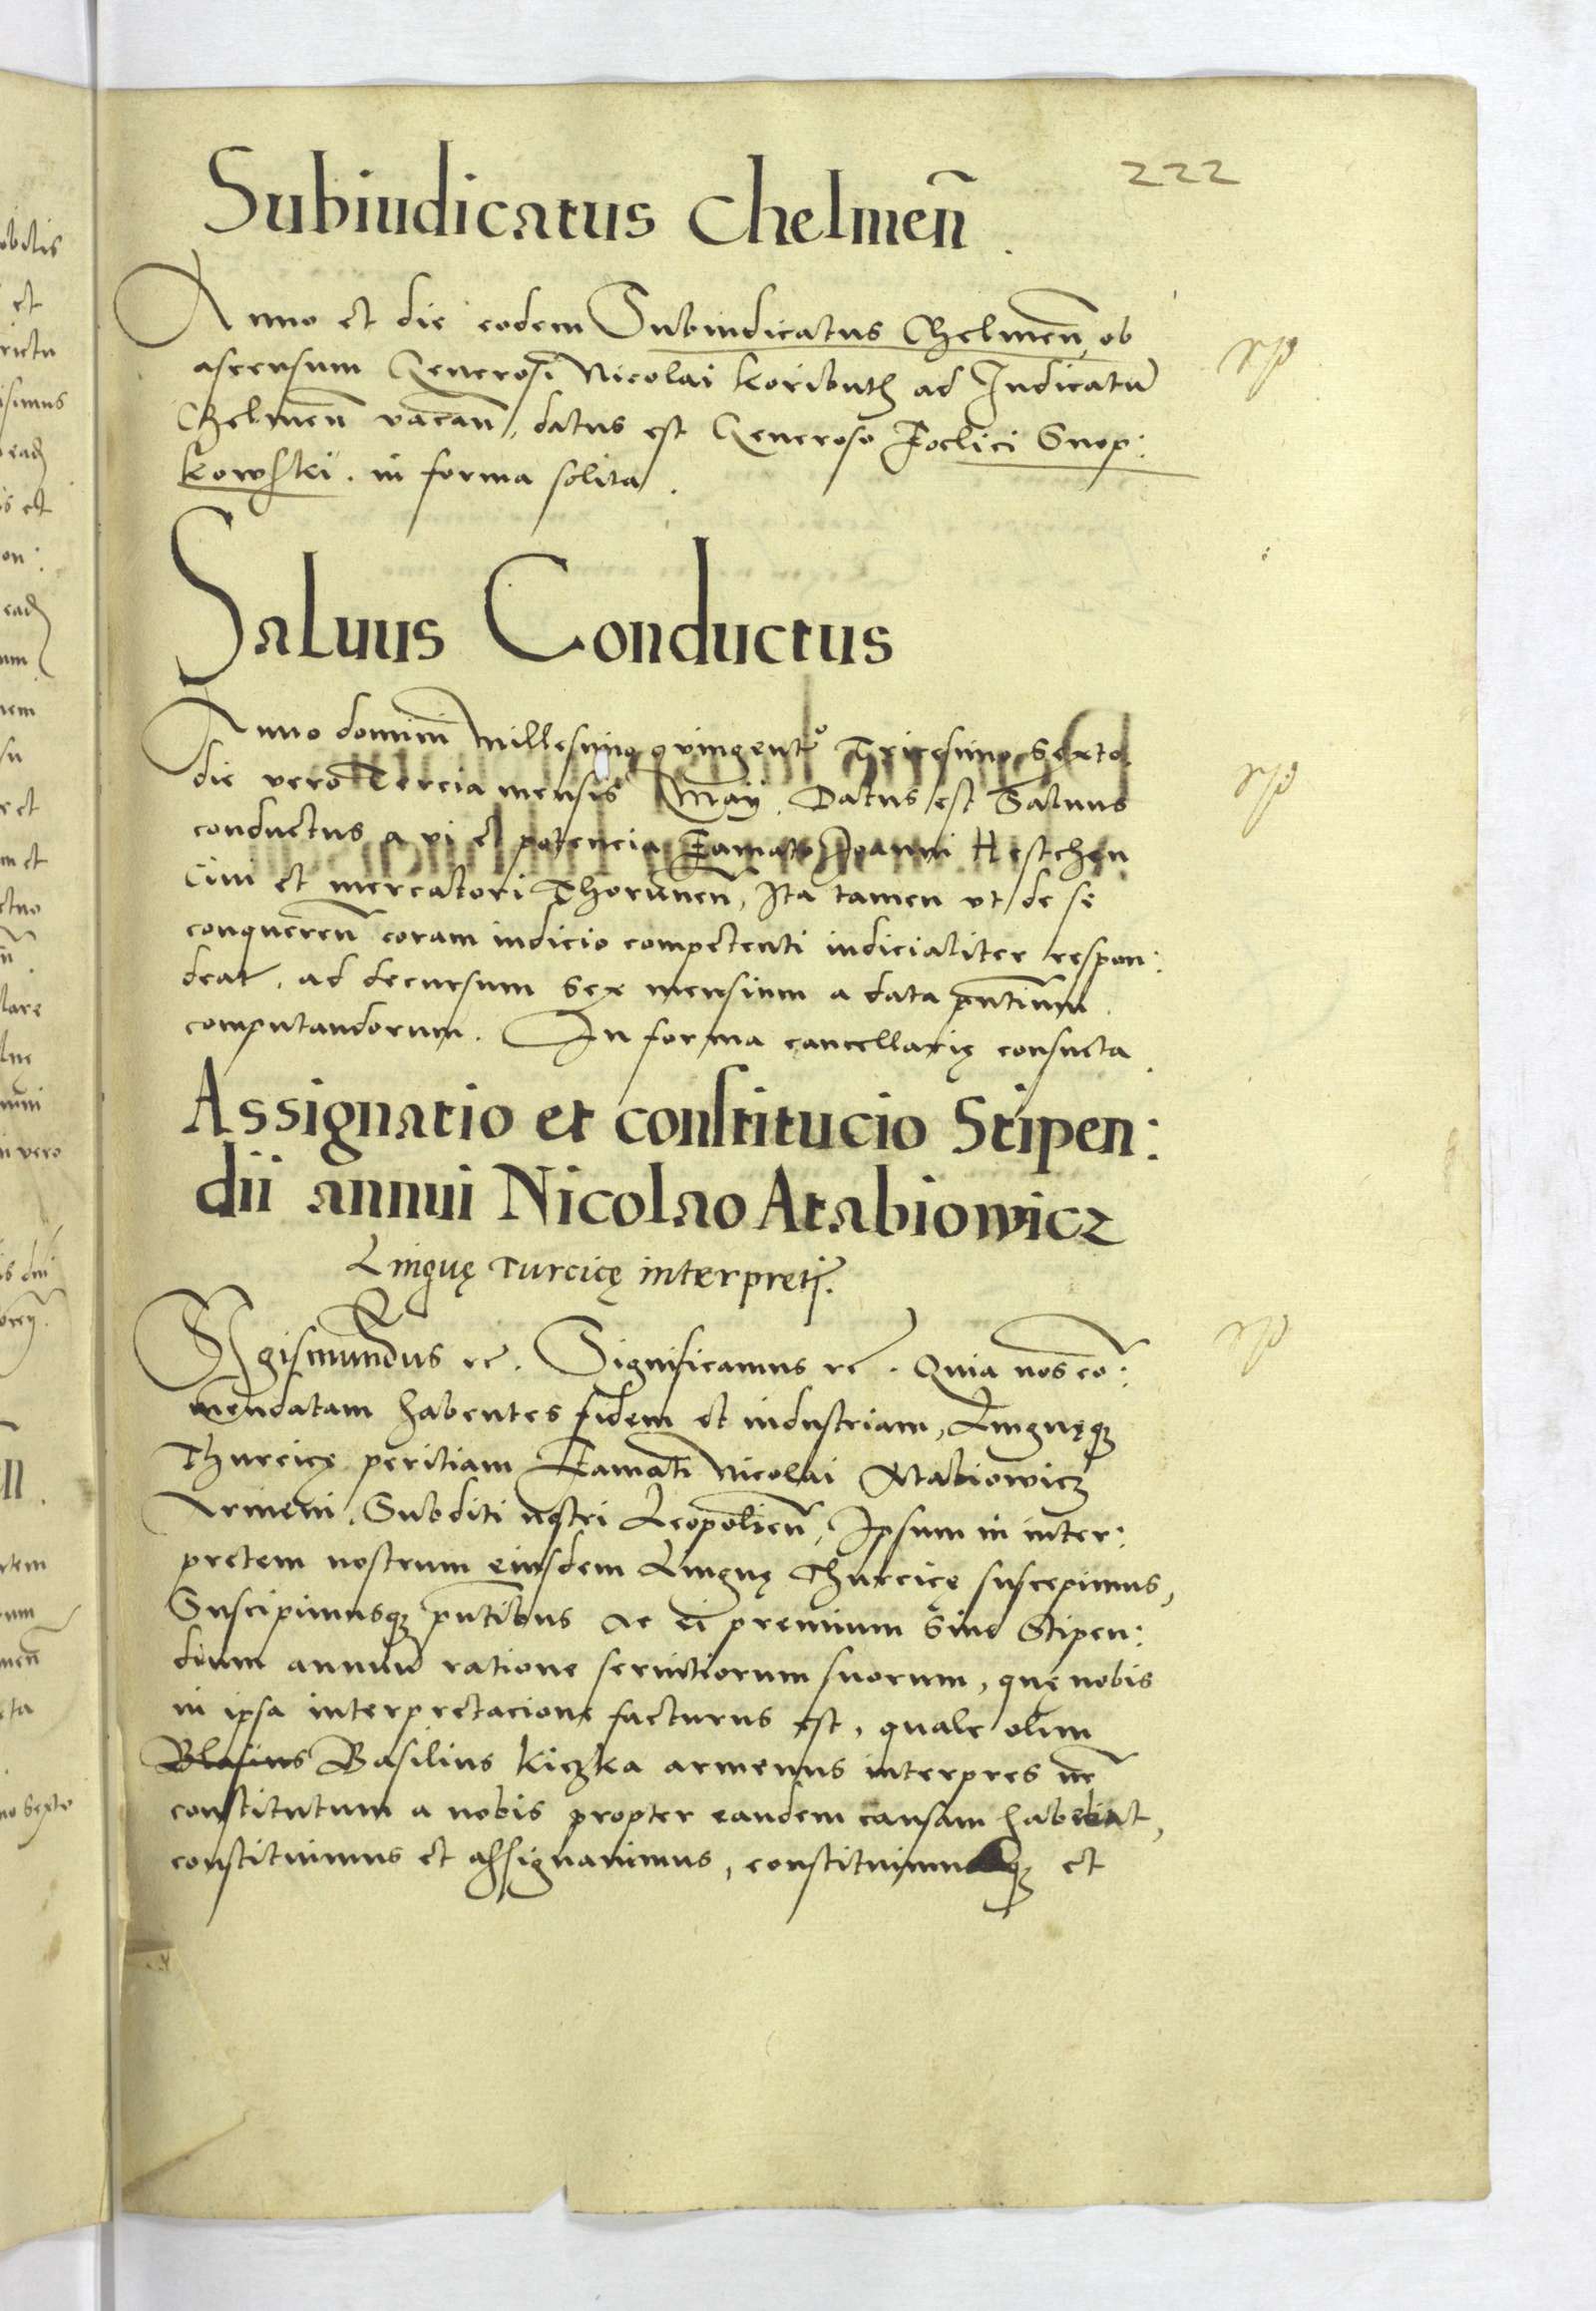 222
Subiudicatus Chelmeñ
Anno et die eodem Subiudicatus Chelmeñ ob
ascensum Generosi Nicolai koributh ad Judicatū
Chelmeñ vacañ, datus est Generoso Foelici Snop:
kowski. in forma solita.
Saluus Conductus
Anno domini Millesimo quingentᵒ Tricesimo Sexto.
die vero Tercia mensis Maij. Datus est Saluus
conductus a vi et potencia Famato Joanni Hestchen
Ciui et mercatori Thoruneñ, Ita tamen vt de se
conquereñ coram iudicio competenti iudicialiter respon:
deat, ad decursum sex mensium a data pñtium
computandorum. In forma cancellarię consueta.
Assignatio et constitucio Stipen:
dii annui Nicolao Atabiowicz
Linguę Turcicę interpreti.
Sigismundus ꝛc. Significamus ꝛc. Quia nos cō:
mendatam habentes fidem et industriam, Linguęqꝫ
Thurcicę peritiam Famati Nicolai Atabiowicz
Armeni, Subditi nostri Leopolieñ, Ipsum in inter:
pretem nostrum eiusdem Linguę Thurcicę suscepimus,
Suscipimusqꝫ pñtibus Ac ei premium siue Stipen:
dium annuū ratione seruitiorum suorum, quę nobis
in ipsa interpretacione facturus est, quale olim
Blasius Basilius kiczka armenus interpres nr̄
constitutum a nobis propter eandem causam habebat,
constituimus et assignauimus, constituimusqꝫ et